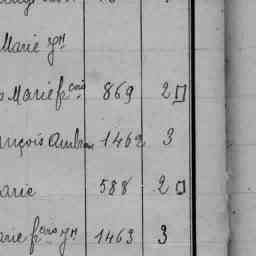 Marie
Marie fcois 869 2
nçois 1462 3
arie 588 2
arie fcois 1463 3